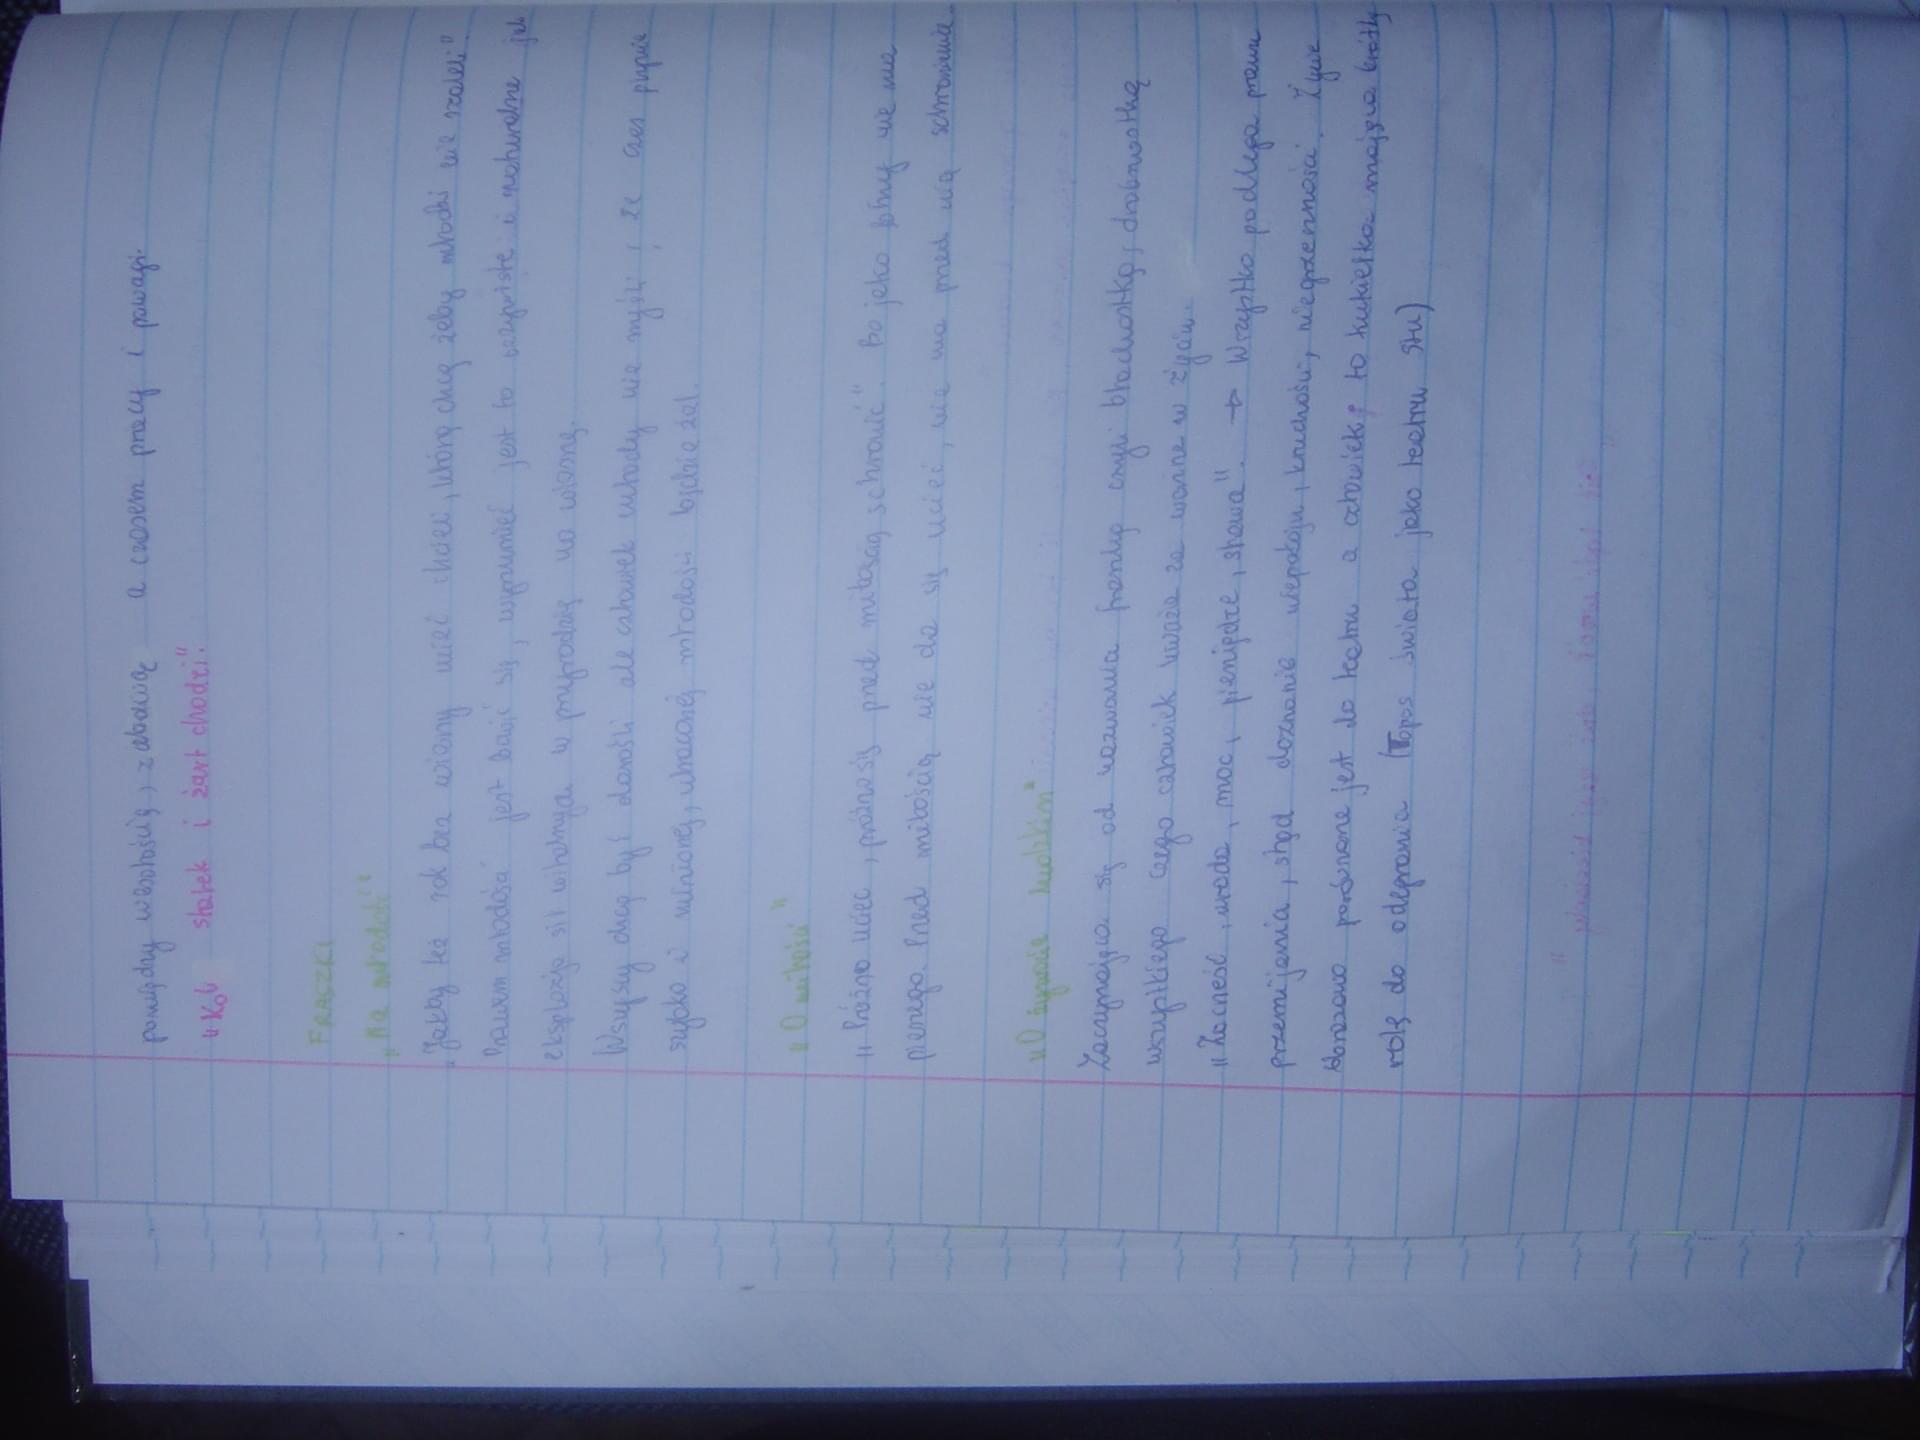 pomiędzy wesołością, zabawą a czasem pracy i powagi.
" statek i żart chodzi".
FRASZKI
„Na młodość"
"Jakby też rok bez wiosny mieć chcieli, którzy chcą żeby młodzi nie szaleli".
Prawem młodości jest bawić się, wyszumieć jest to oczywiste i naturalne jak
eksplozja sił witalnych w przyrodzie na wiosnę.
Wszyscy chcą być dorośli ale człowiek młody nie myśli, że czas płynie
szybko i minionej, utraconej młodości będzie żal.
„O miłości"
" Próżno uciec, próżno się przed miłością schronić". Bo jako lotny nie ma
pieszego. Przed miłością nie da się uciec, nie ma przed nią schronienia.
„O żywocie ludzkim"
Zaczynająca się od nazwania fraszką czyli błachostką, drobnostką
wszystkiego czego człowiek uważa za ważne w życiu.
"Zacność, uroda, moc, pieniądze, sława". → Wszystko podlega prawu
przemijania, stąd doznanie niepokoju, kruchości, Życie
porównane jest do teatru a człowiek, to kukiełka mająca krótką
rolę do odegrania (Topos świata jako teatru )